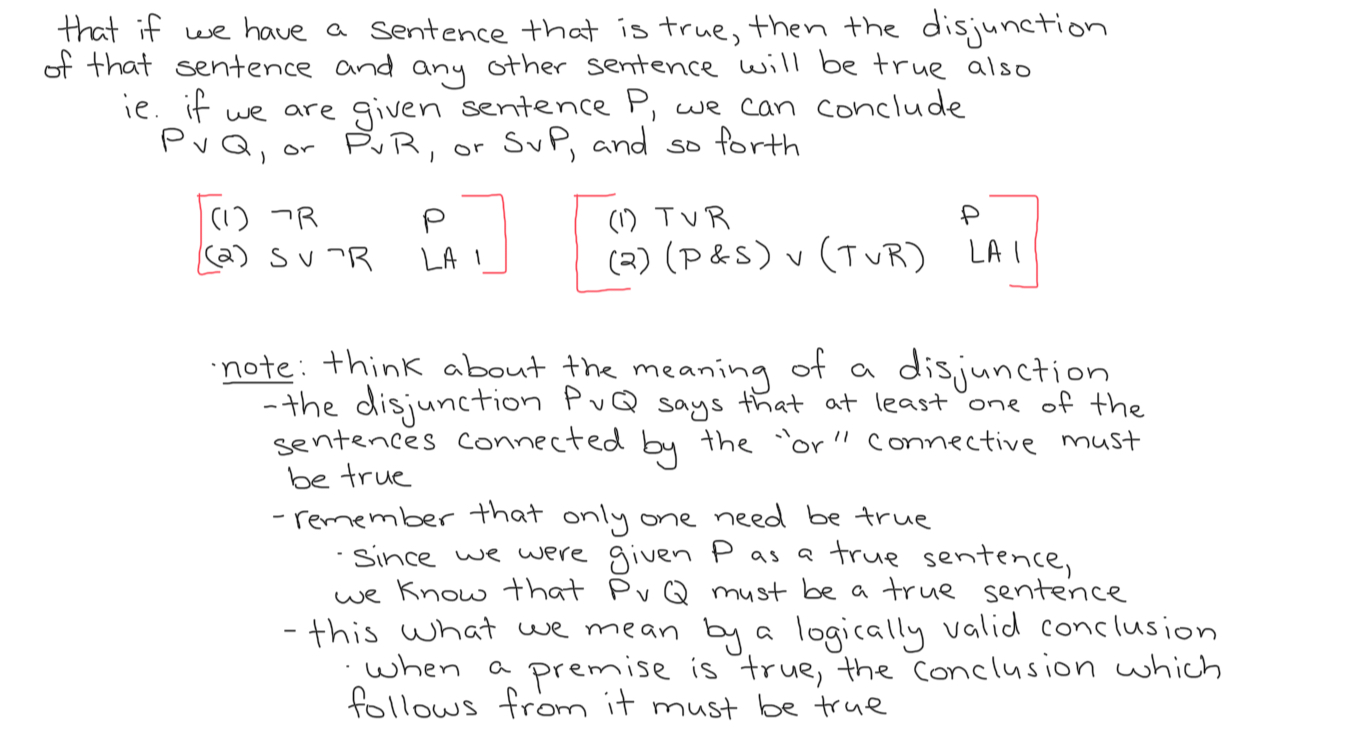 that if we have a sentence that is true, then the disjunction
of that sentence and any other sentence will be true also
ie. if we are given sentence P, we can conclude
P ∨ Q, or P∨R, or S∨P, and so forth
(1) ¬R P (1) T ∨ R P
(2) S ∨ ¬R LA 1 (2) (P & S) ∨ (T ∨ R) LA 1
·note: think about the meaning of a disjunction
-the disjunction P∨Q says that at least one of the
sentences connected by the "or" connective must
be true
-remember that only one need be true
·since we were given P as a true sentence,
we know that P∨ Q must be a true sentence
-this what we mean by a logically valid conclusion
·when a premise is true, the conclusion which
follows from it must be true